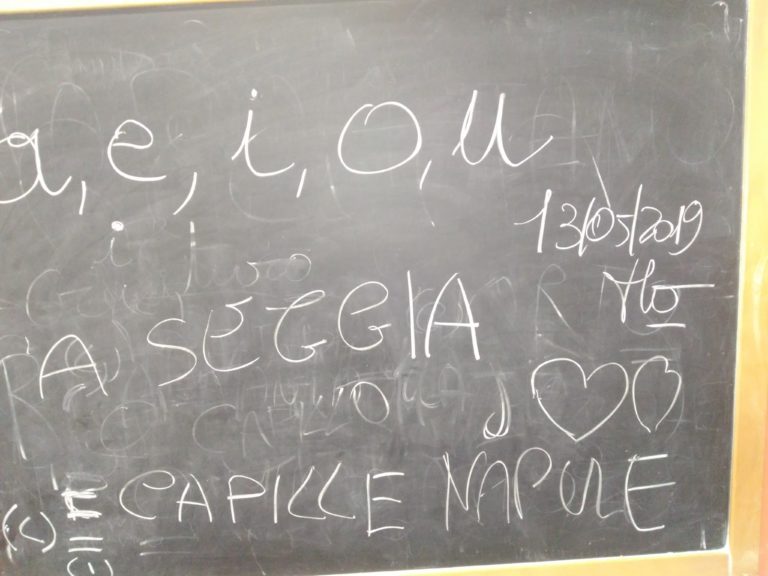 a, e, i, o, u
13/05/2019
A SEGGIA
CAPILLE NAPULE